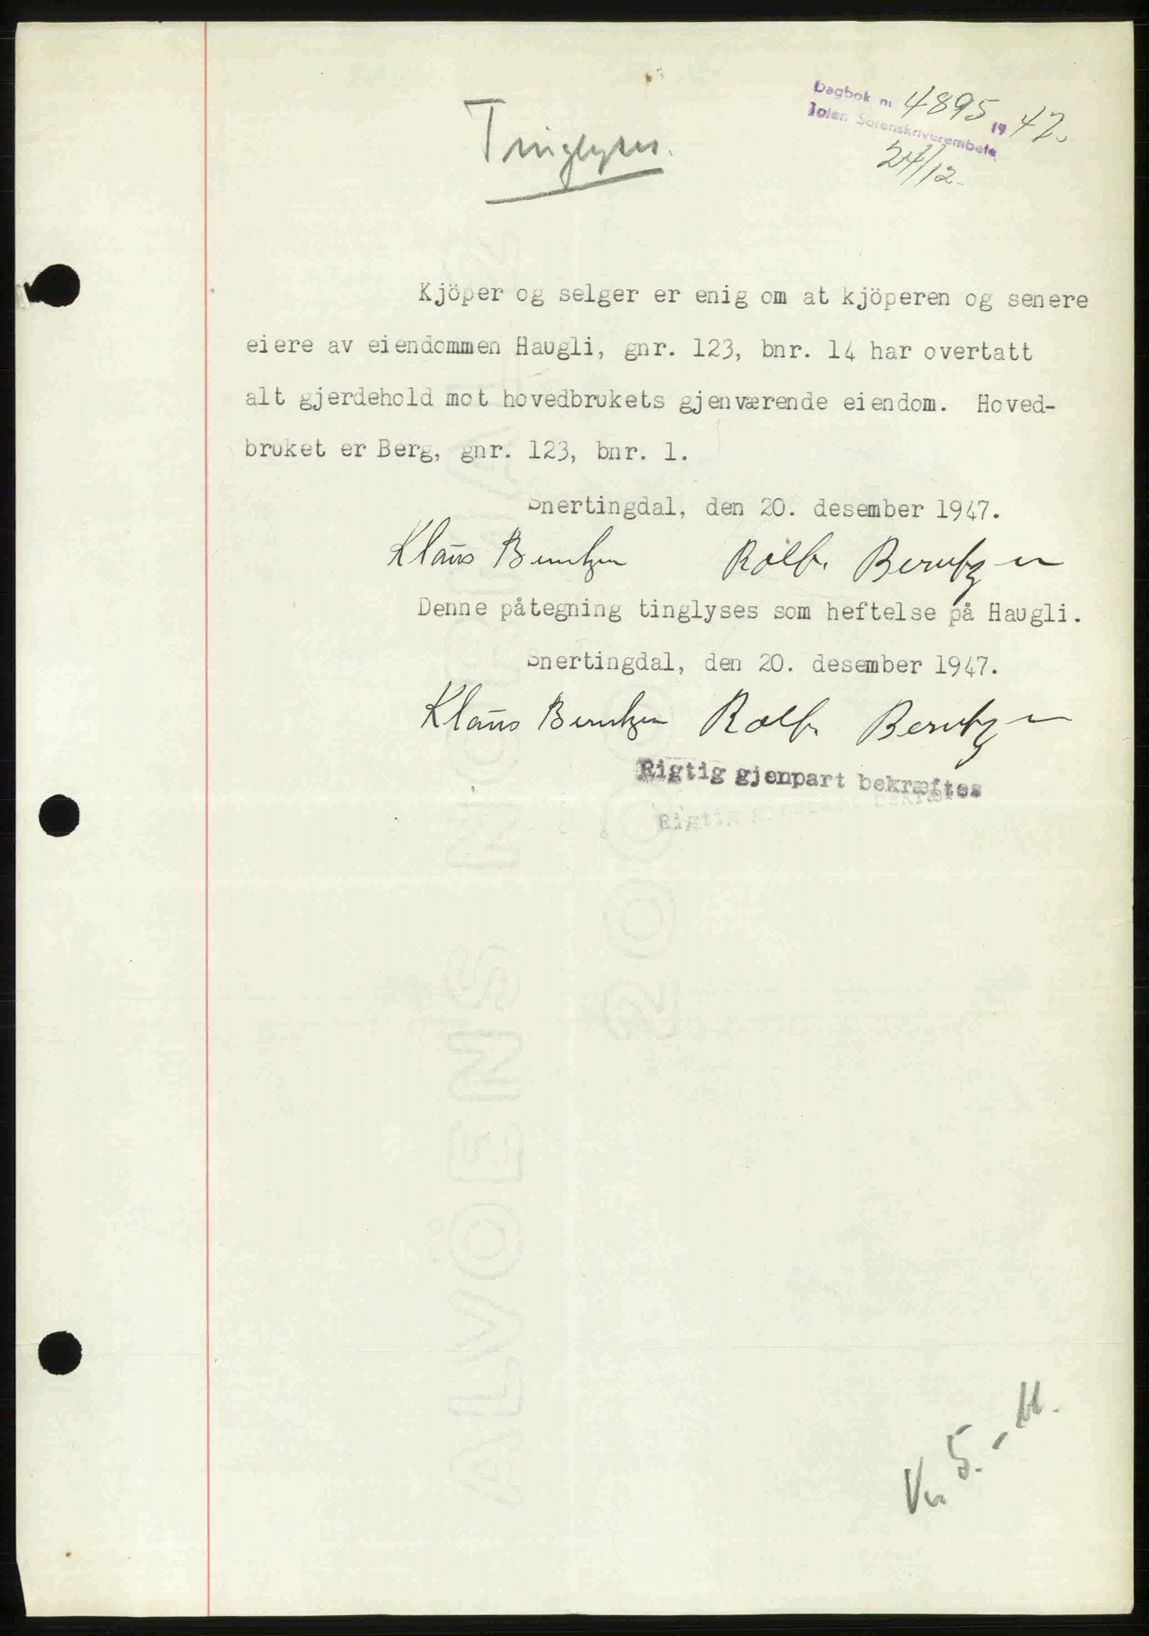 Dagbok nr 4895 1947.
Toten Sorenskriverembete
24/12.
Tinglyses.
Kjöper og selger er enig om at kjöperen og senere
eiere av eiendommen Haugli, gnr. 123, bnr. 14 har overtatt
alt gjerdehold mot hovedbrukets gjenværende eiendom. Hoved-
bruket er Berg, gnr. 123, bnr. 1.
Snertingdal, den 20. desember 1947.
Klaus Berntzen Rolf Berntzen
Denne påtegning tinglyses som heftelse på Haugli.
Snertingdal, den 20. desember 1947.
Klaus Berntzen Rolf Berntzen
Rigtig gjenpart bekræftes
Rigtig gjenpart bekræftes
ALVÖENS NORMAL 2
5.-